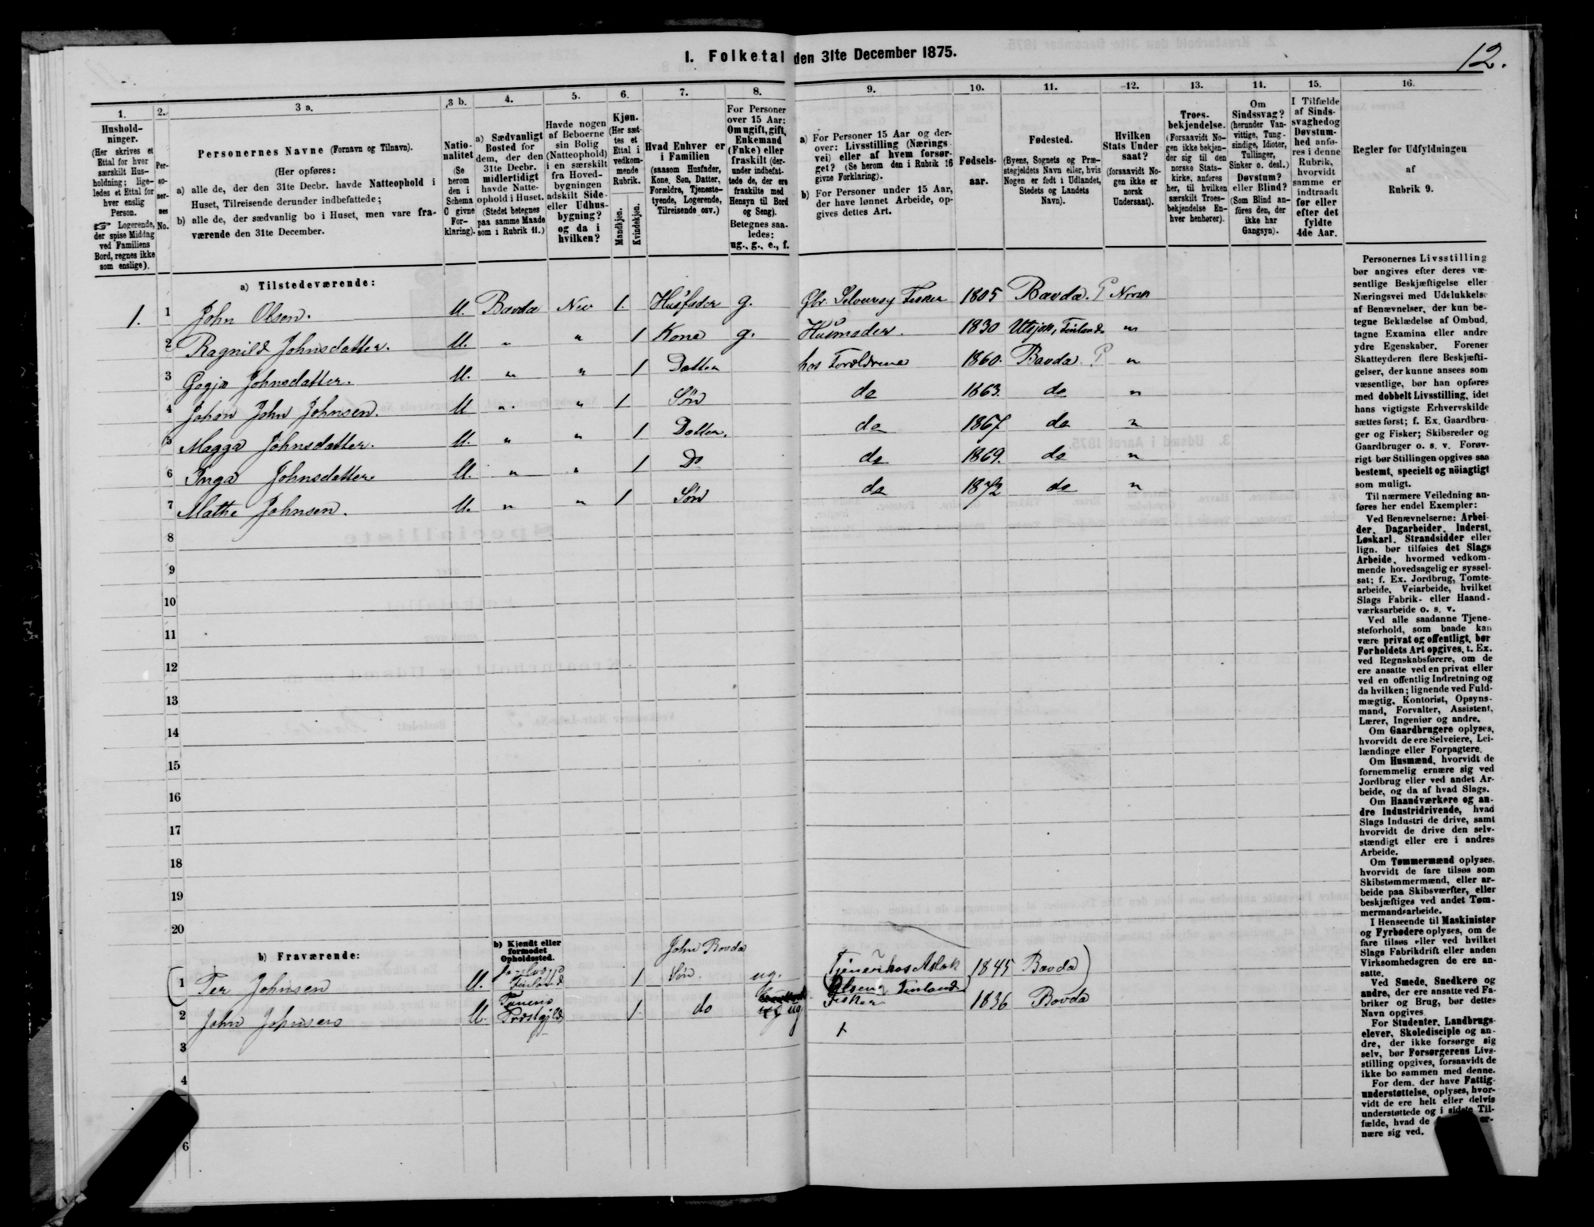 1. Folketal den 31te December 1875.
12.
1.
Hushold-
ninger.
(Her skrives et
Ettal for hver
særskilt Hus-
holdning; lige-
ledes et Ettal for
hver enslig
Person.
☞ Logerende,
der spise Middag
ved Familiens
Bord, regnes ikke
som enslige).
2.
Per-
so-
ner-
nes
No.
3 a.
Personernes Navne (Fornavn og Tilnavn).
(Her opføres:
a) alle de, der den 31te Decbr. havde Natteophold i
Huset, Tilreisende derunder indbefattede;
b) alle de, der sædvanlig bo i Huset, men vare fra-
værende den 31te December.
3 b.
Natio-
nalitet
(Se
herom
den i
Schema
C givne
For-
klaring).
4.
a) Sædvanligt
Bosted for
dem, der den
31te Decbr.
midlertidigt
havde Natte-
ophold i Huset.
(Stedet betegnes
paa samme Maade
som i Rubrik 11.)
5.
Havde nogen
af Beboerne
sin Bolig
(Natteophold)
i en særskilt
fra Hoved-
bygningen
adskilt Side-
eller Udhus-
bygning?
og da i
hvilken?
6.
Kjøn.
(Her sæt-
tes et
Ettal i
vedkom-
mende
Rubrik.
Mandkjøn.
Kvindekjøn.
7.
Hvad Enhver er
i Familien
(saasom Husfader,
Kone, Søn, Datter,
Forældre, Tjeneste-
tyende, Logerende,
Tilreisende osv.)
8.
For Personer
over 15 Aar:
Om ugift, gift,
Enkemand
(Enke) eller
fraskilt (der-
under indbefat-
tede de, der ere
fraskilte med
Hensyn til Bord
og Seng).
Betegnes saa-
ledes:
ug., g., e., f.
9.
a) For Personer 15 Aar og der-
over: Livsstilling (Nærings-
vei) eller af hvem forsør-
get? (Se herom den i Rubrik 16
givne Forklaring).
b) For Personer under 15 Aar,
der have lønnet Arbeide, op-
gives dettes Art.
10.
Fødsels-
aar.
11.
Fødested.
(Byens, Sognets og Præ-
stegjeldets Navn eller, hvis
Nogen er født i Udlandet,
Stedets og Landets
Navn).
12.
Hvilken
Stats Under
saat?
(forsaavidt No-
gen ikke er
norsk
Undersaat).
13.
Troes-
bekjendelse.
(Forsaavidt No-
gen ikke bekjen-
der sig til den
norske Stats-
kirke, anføres
her, til hvilken
særskilt Troes-
bekjendelse En-
hver henhører).
14.
Om
Sindssvag?
(herunder Van-
vittige, Tung-
sindige, Idioter,
Tullinger,
Sinker o. desl.)
Døvstum?
eller Blind?
(Som Blind an-
føres den, der
ikke har
Gangsyn).
15.
I Tilfælde
af Sinds-
svaghed og
Døvstum-
hed anfø-
res i denne
Rubrik,
hvorvidt
samme er
indtraadt
før eller
efter det
fyldte
4de Aar.
16.
Regler for Udfyldningen
af
Rubrik 9.
a) Tilstedeværende:
1. 1 John Olsen. U. Bavda Nei 1. Husfader g. Fisker 1805 Bavda. P Norsk
2 Ragnild Johnsdatter. U. " " 1 Kone g. Husmoder. 1830 Utsjok, Finland "
3 Gogja Johnsdatter. U. " " 1 Datter hos Forældrene 1860. Bavda P "
4 Johan John Johnsen U " " 1 Søn do 1863. do "
5 Magga Johnsdatter. U. " " 1 Datter. do 1867 do "
6 Inga Johnsdatter U. " " 1 Do do 1869. do "
7 Mathe Johnsen. U. " " 1 Søn do 1872 do "
8
9
10
11
12
13
14
15
16
17
18
19
20
b) Fraværende:
b) Kjendt eller
formodet
Opholdssted.
John Bavda
1 Per Johnsen U. Finland 1 Søn ug. (Tjener hos Aslak Olsen Finland 1845 Bavda)
2 John Johnsen U. Præstgjeld 1 do ug Fisker 1836 Bavda
3
4
6
Personernes Livsstilling
bør angives efter deres væ-
sentlige Beskjæftigelse eller
Næringsvei med Udelukkelse
af Benævnelser, der kun be-
tegne Beklædelse af Ombud,
tagne Examina eller andre
ydre Egenskaber. Forener
Skatteyderen flere Beskjæfti-
gelser, der kunne ansees som
væsentlige, bør han opføres
med dobbelt Livsstilling, idet
hans vigtigste Erhvervskilde
sættes først; f. Ex. Gaardbru-
ger og Fisker; Skibsreder og
Gaardbruger o. s. v. Forøv-
rigt bør Stillingen opgives saa
bestemt, specielt og nöiagtigt
som muligt.
Til nærmere Veiledning an-
føres her endel Exempler:
Ved Benævnelserne: Arbei-
der, Dagarbeider, Inderst,
Løskarl, Strandsidder eller
lign. bør tilføies det Slags
Arbeide, hvormed vedkom-
mende hovedsagelig er syssel-
sat; f. Ex. Jordbrug, Tomte-
arbeide, Veiarbeide, hvilket
Slags Fabrik- eller Haand-
værksarbeide o. s. v.
Ved alle saadanne Tjene-
steforhold, som baade kan
være privat og offentligt, bør
Forholdets Art opgives, t. Ex.
ved Regnskabsførere, om de
ere ansatte ved en privat eller
ved en offentlig Indretning og
da hvilken; lignende ved Fuld-
mægtig, Kontorist, Opsyns-
mand, Forvalter, Assistent,
Lærer, Ingeniør og andre.
Om Gaardbrugere oplyses,
hvorvidt de ere Selveiere, Lei-
lændinge eller Forpagtere.
Om Husmænd, hvorvidt de
fornemmelig ernære sig ved
Jordbrug eller ved andet Ar-
beide, og da af hvad Slags.
Om Haandværkere og an-
dre Industridrivende, hvad
Slags Industri de drive, samt
hvorvidt de drive den selv-
stændigt eller ere i andres
Arbeide.
Om Tømmermænd oplyses,
hvorvidt de fare tilsøs som
Skibstømmermænd, eller ar-
beide paa Skibsværfter, eller
beskjæftiges ved andet Tøm-
mermandsarbeide.
I Henseende til Maskinister
og Fyrbødere oplyses, om de
fare tilsøs eller ved hvilket
Slags Fabrikdrift eller anden
Virksomhedsgren de ere an-
satte.
Ved Smede, Snedkere og
andre, der ere ansatte ved Fa-
briker og Brug, bør dettes
Navn opgives.
For Studenter, Landbrugs-
elever, Skoledisciple og an-
dre, der ikke forsørge sig
selv, bør Forsørgerens Livs-
stilling opgives, forsaavidt de
ikke bo sammen med denne.
For dem, der have Fattig-
understøttelse, oplyses, hvor-
vidt de ere helt eller delvis
understøttede og i sidste Til-
fælde, hvad de
nære sig ved.